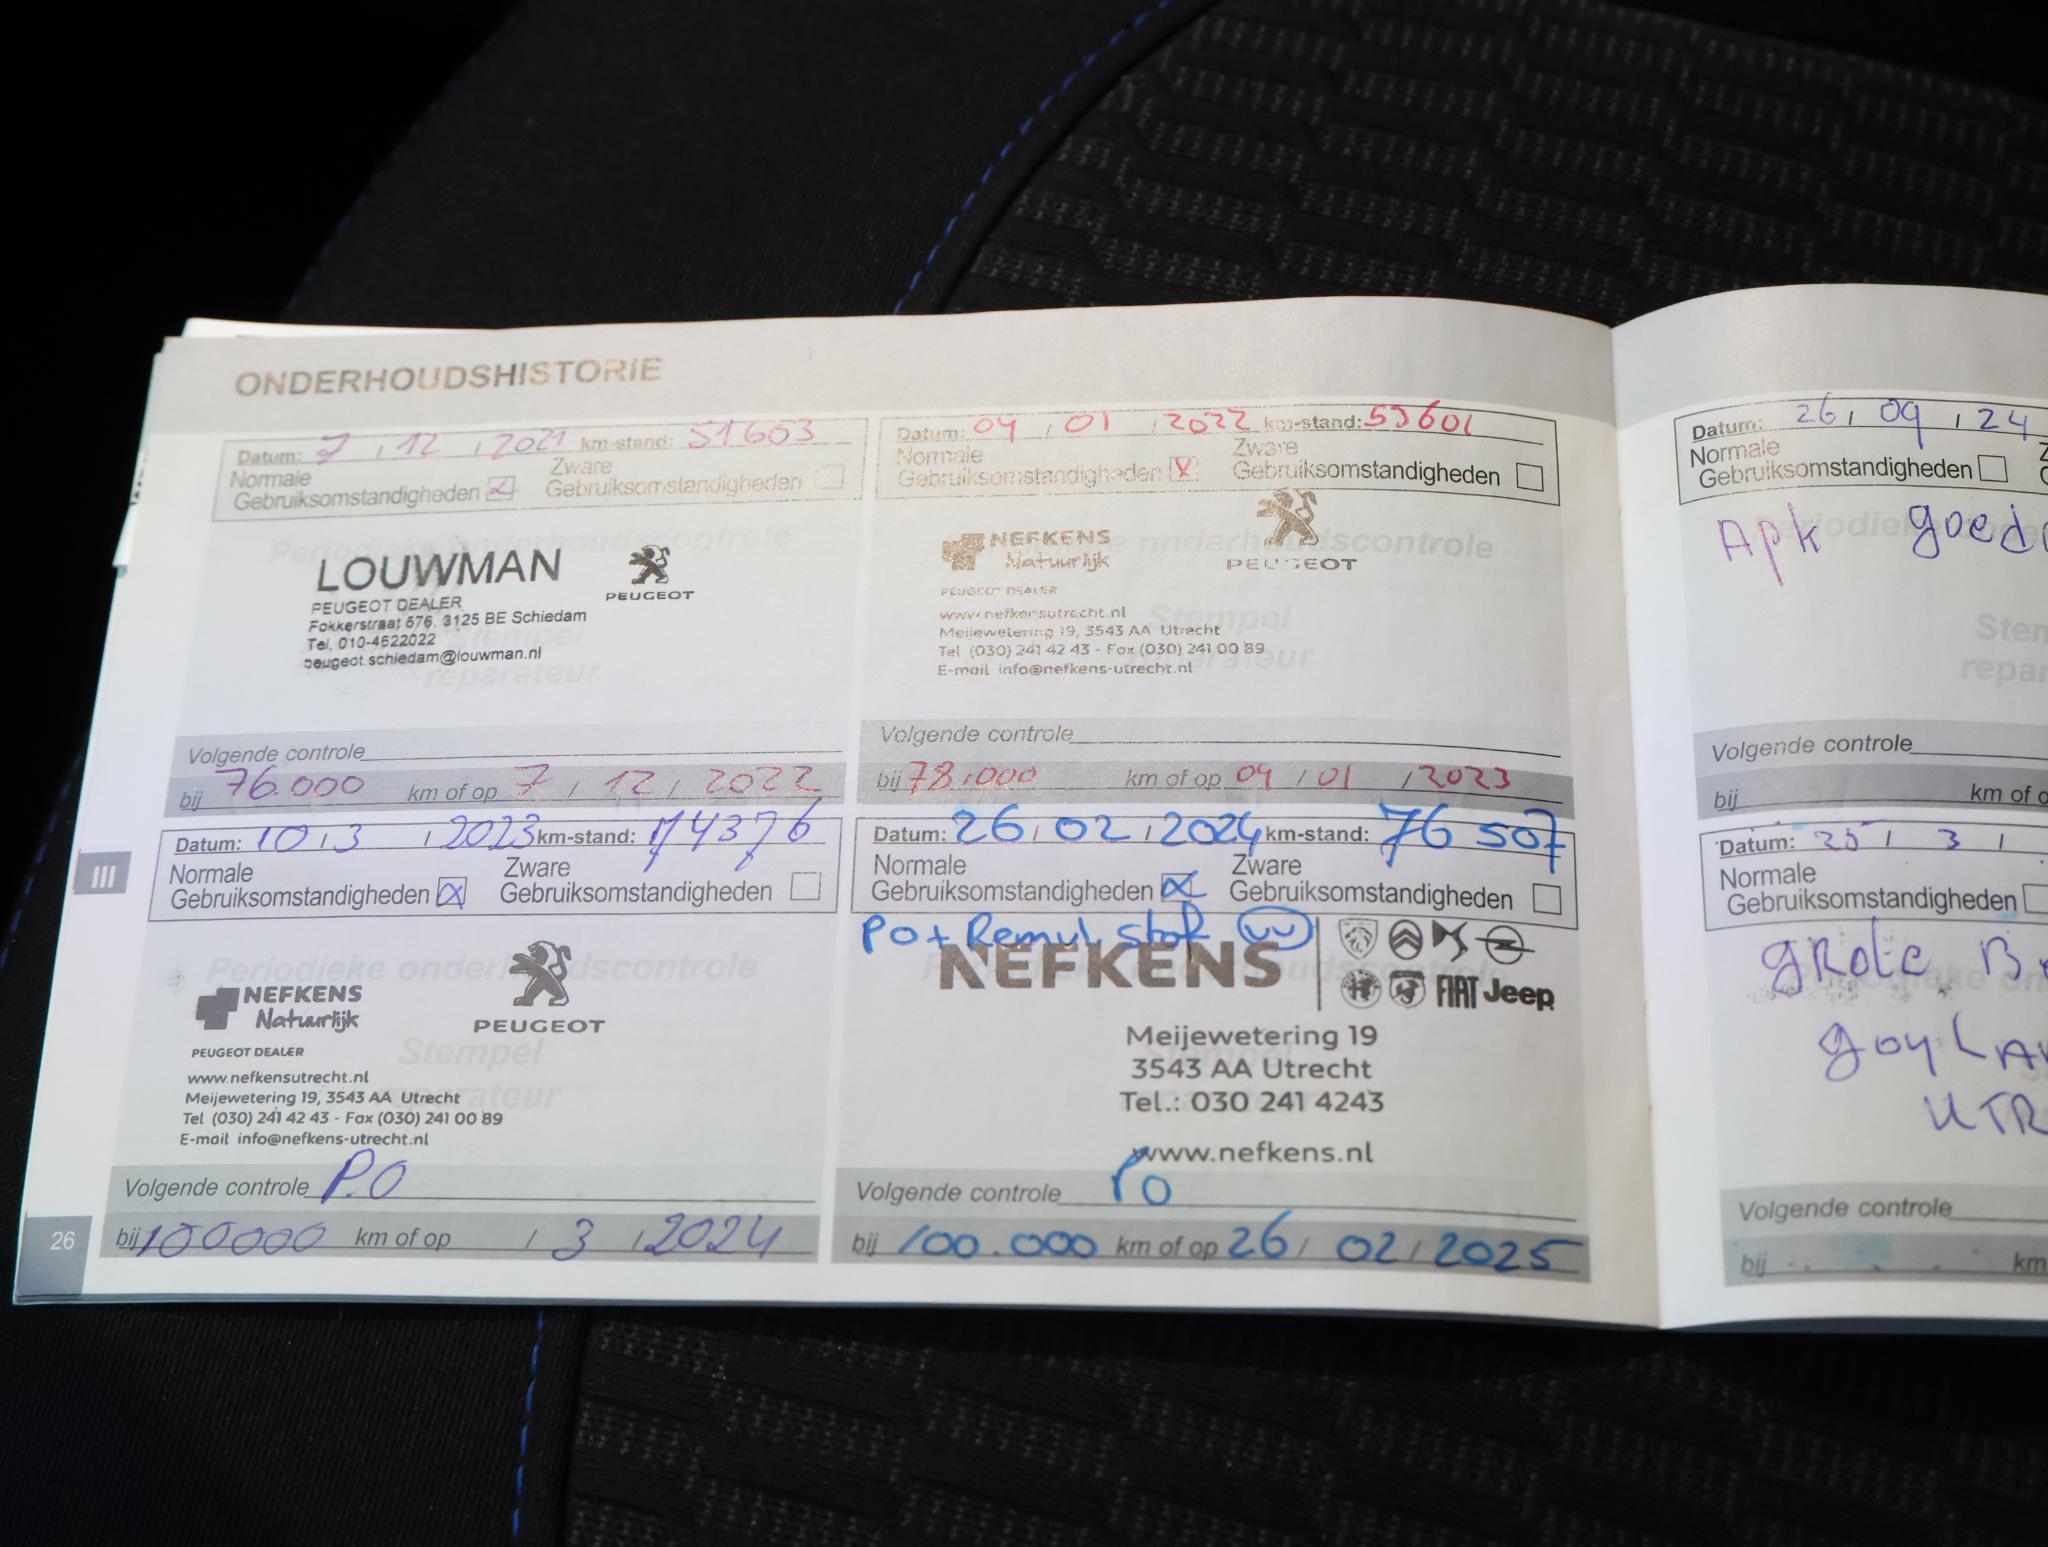 ONDERHOUDSHISTORIE
Datum: 7 / 12 / 2021 km-stand: 51603
Normale
Gebruiksomstandigheden
Zware
Gebruiksomstandigheden
Periodieke onderhoudscontrole
LOUWMAN
PEUGEOT
PEUGEOT DEALER
Fokkerstraat 576, 3125 BE Schiedam
Tel. 010-4622022
peugeot.schiedam@louwman.nl
Stempel
reparateur
Volgende controle
bij 76.000 km of op 7 / 12 / 2022
Datum: 04 / 01 / 2022 km-stand: 53601
Normale
Gebruiksomstandigheden
Zware
Gebruiksomstandigheden
Periodieke onderhoudscontrole
NEFKENS
Natuurlijk
PEUGEOT
PEUGEOT DEALER
www.nefkensutrecht.nl
Meijewetering 19, 3543 AA Utrecht
Tel (030) 241 42 43 - Fax (030) 241 00 89
E-mail info@nefkens-utrecht.nl
Stempel
reparateur
Volgende controle
bij 78.000 km of op 04 / 01 / 2023
III
Datum: 10 / 3 / 2023 km-stand: 74376
Normale
Gebruiksomstandigheden
Zware
Gebruiksomstandigheden
Periodieke onderhoudscontrole
NEFKENS
Natuurlijk
PEUGEOT
PEUGEOT DEALER
www.nefkensutrecht.nl
Meijewetering 19, 3543 AA Utrecht
Tel (030) 241 42 43 - Fax (030) 241 00 89
E-mail info@nefkens-utrecht.nl
Stempel
reparateur
Volgende controle P.O
bij 100000 km of op / 3 / 2024
26
Datum: 26 / 02 / 2024 km-stand: 76 507
Normale
Gebruiksomstandigheden
Zware
Gebruiksomstandigheden
PO +
NEFKENS
FIAT Jeep
Meijewetering 19
3543 AA Utrecht
Tel.: 030 241 4243
www.nefkens.nl
Volgende controle PO
bij 100.000 km of op 26 / 02 / 2025
Datum: 26 / 09 / 24
Normale
Gebruiksomstandigheden
Apk goed
Volgende controle
bij km of o
Datum: 25 / 3 /
Normale
Gebruiksomstandigheden
grote B
UTR
Volgende controle
bij km